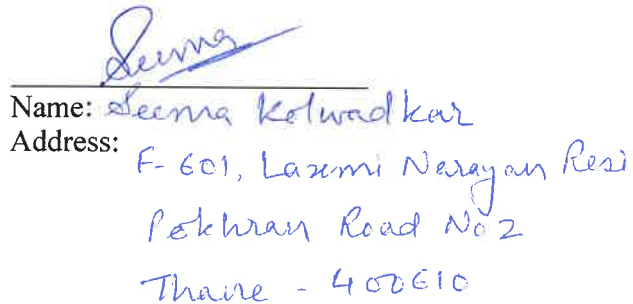 Seema
Name: Seema Kolwadkar
Address:
F-601, Laxmi Narayan Resi
Pokhran Road No 2
Thane - 400610